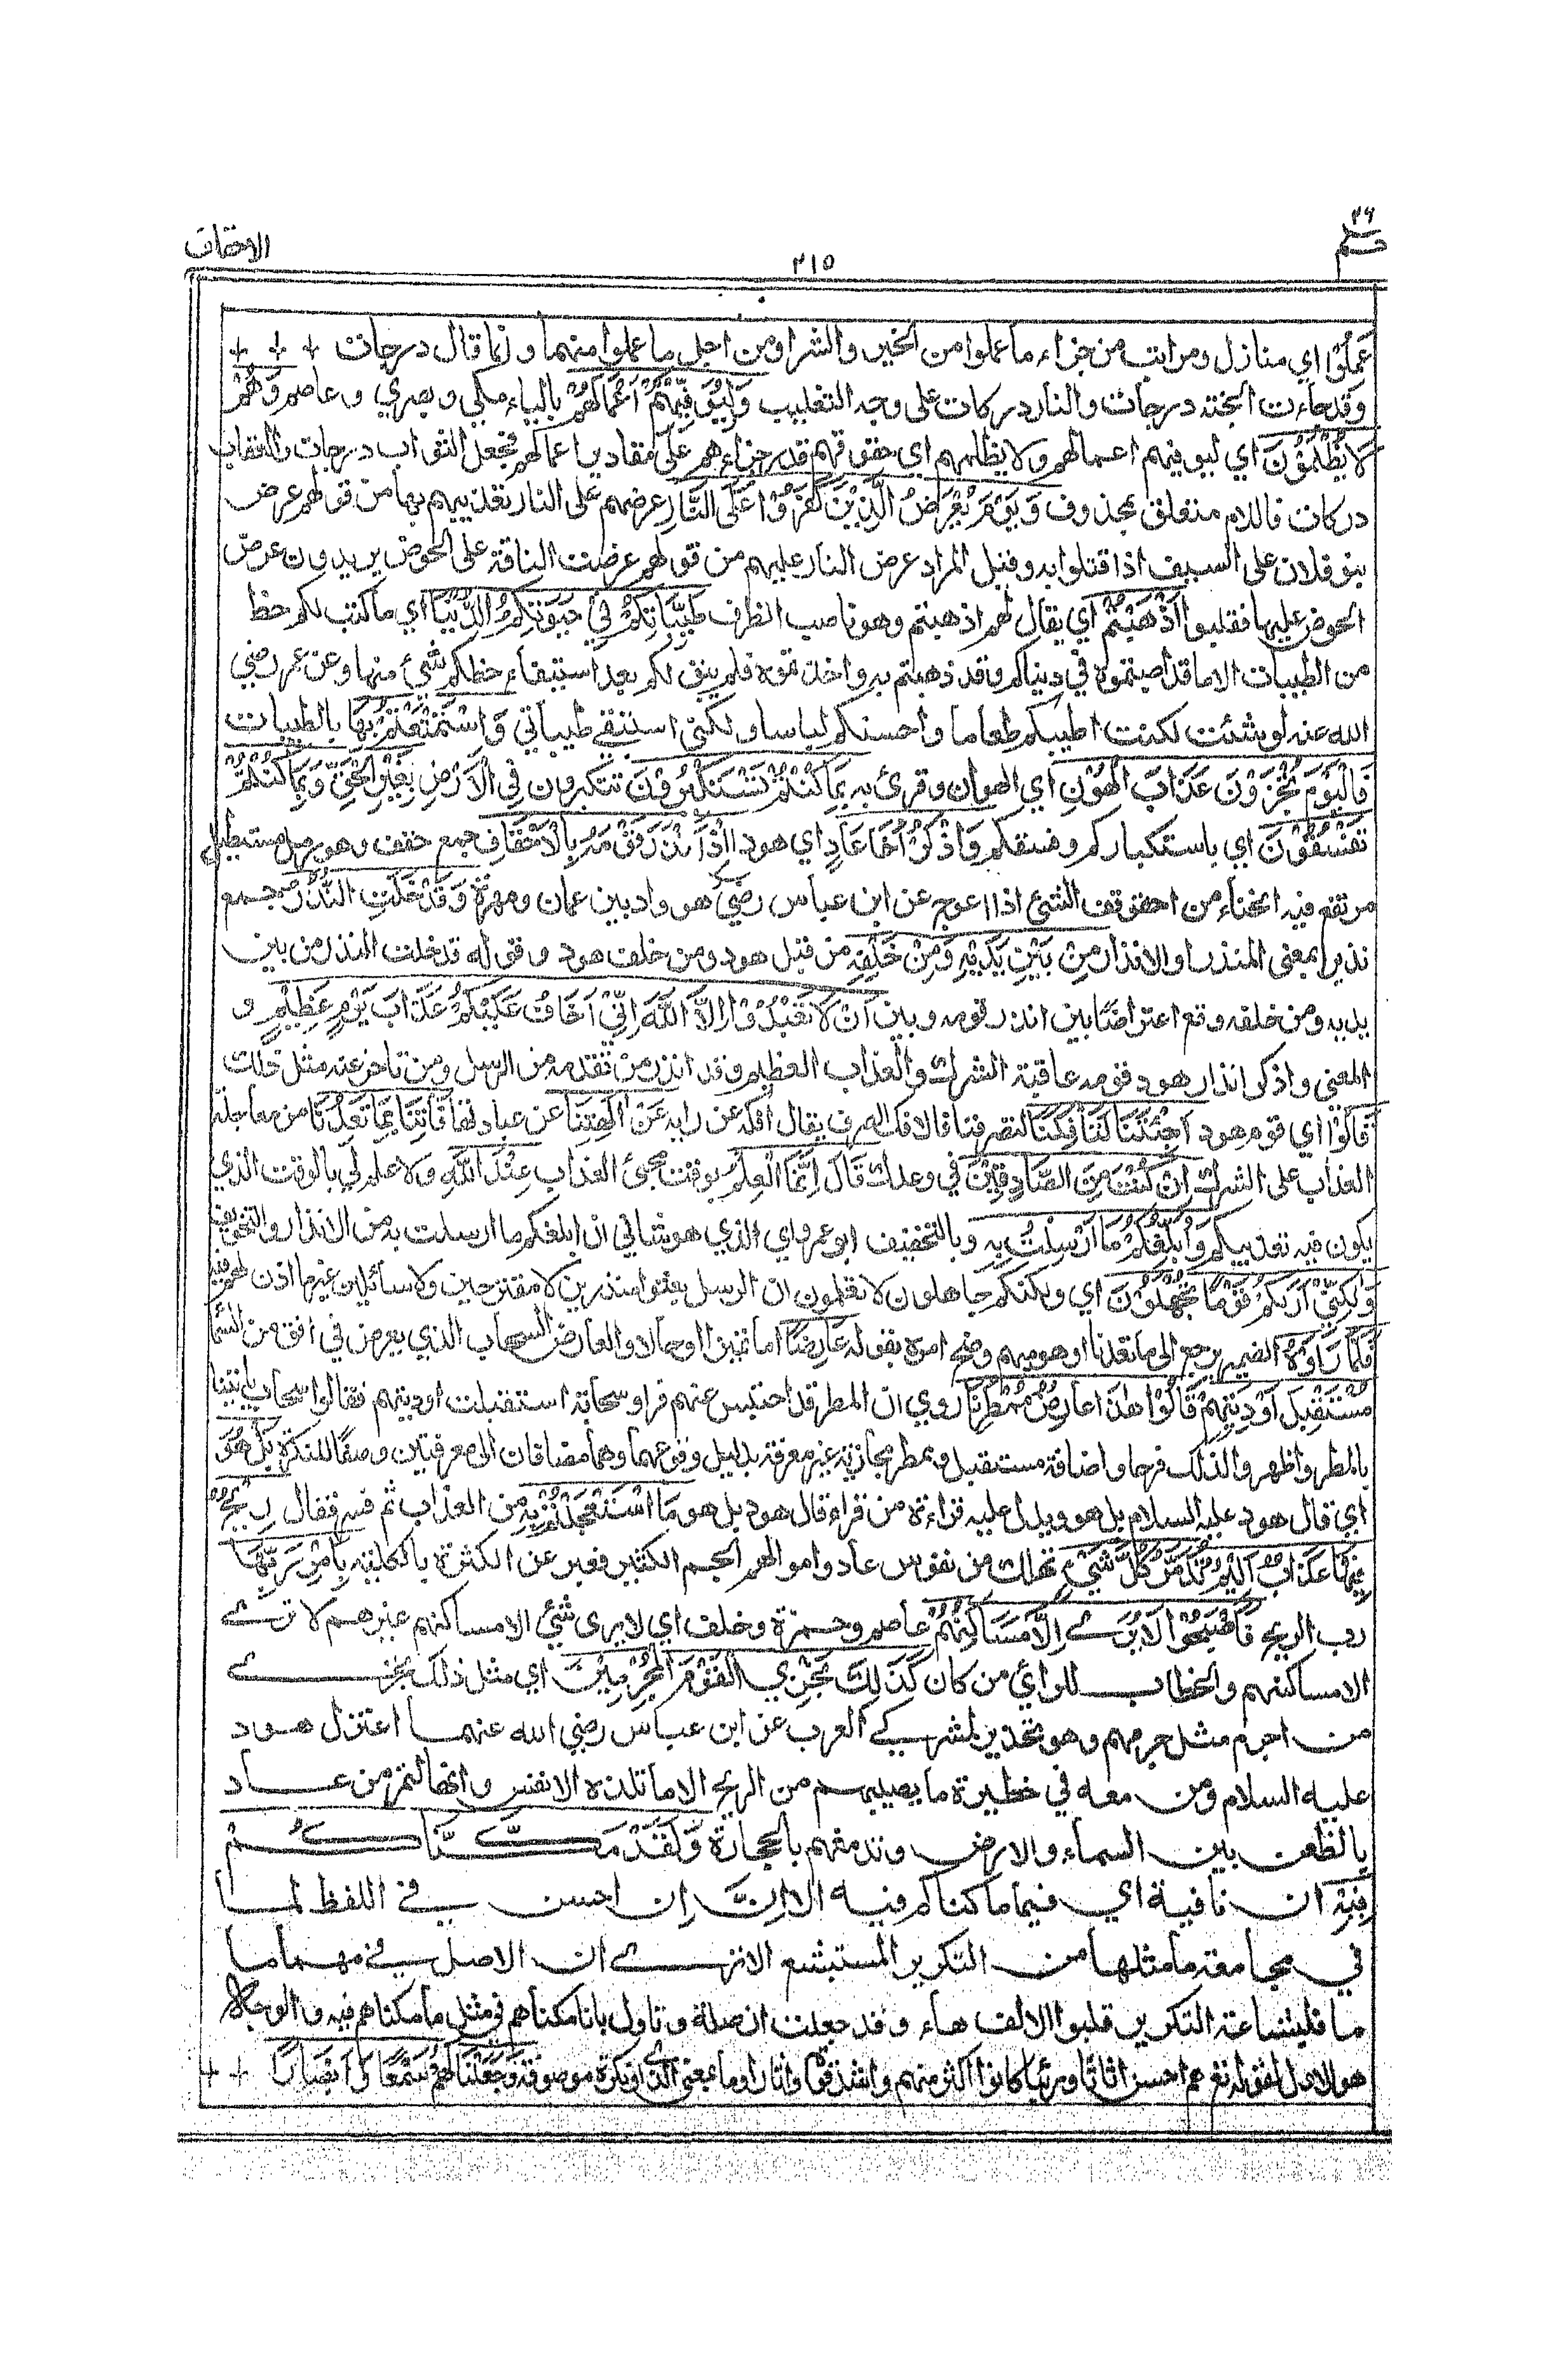 حٰم ٢٦
٢١٥
الاحقاف
عَمِلُوْا اي منازل ومراتب من جزاء ما عملوا من الخير والشر او من اجل ما عملوا منهما وانما قال درجات
وقد جاءت الجنة درجات والنار دركات على وجه التغليب وَلِيُوَفِّيَهُمْ اَعْمَالَهُمْ بالياء مكي وبصري وعاصم وَهُمْ
لَا يُظْلَمُوْنَ اي ليوفيهم اعمالهم ولا يظلمهم اي حقوقهم قدر جزاءهم على مقادير اعمالهم فجعل الثواب درجات والعقاب
دركات فاللام متعلق بمحذوف وَيَوْمَ يُعْرَضُ الَّذِيْنَ كَفَرُوْا عَلَى النَّارِ عرضهم على النار تعذيبهم بها من قولهم عرض
بنو فلان على السيف اذا قتلوا به وقيل المراد عرض النار عليهم من قولهم عرضت الناقة على الحوض يريدون عرض
الحوض عليها فقلبوا اَذْهَبْتُمْ اي يقال لهم اذهبتم وهو ناصب الظرف طَيِّبَاتِكُمْ فِيْ حَيٰوتِكُمُ الدُّنْيَا اي ما كتب لكم حظ
من الطيبات الا ما قد اصبتموه في دنياكم وقد ذهبتم به واخذتموه فلم يبق لكم بعد استيفاء حظكم شئ منها وعن عمر رضي
الله عنه لو شئت لكنت اطيبكم طعاما واحسنكم لباسا ولكنى استبقے طيباتي وَاسْتَمْتَعْتُمْ بِهَا بالطيبات
فَالْيَوْمَ تُجْزَوْنَ عَذَابَ الْهُوْنِ اي الهوان وقرئ به بِمَا كُنْتُمْ تَسْتَكْبِرُوْنَ تتكبرون فِي الْاَرْضِ بِغَيْرِ الْحَقِّ وَبِمَا كُنْتُمْ
تَفْسُقُوْنَ اي باستكباركم وفسقكم وَاذْكُرْ اَخَا عَادٍ اي هود ا اِذْ اَنْذَرَ قَوْمَهٗ بِالْاَحْقَافِ جمع حقف وهو رمل مستطيل
مرتفع فيه انحناء من احقوقف الشئ اذا اعوج عن ابن عباس رضي هو واد بين عمان ومهرة وَقَدْ خَلَتِ النُّذُرُ جمع
نذير بمعنى المنذر او الانذار مِنْ بَيْنِ يَدَيْهِ وَمِنْ خَلْفِهٖ من قبل هود ومن خلف هود وقوله قد خلت النذر من بين
يديه ومن خلفه وقع اعتراضًا بين انذر قومه وبين اَنْ لَا تَعْبُدُوْا اِلَّا اللّٰهَ اِنِّيْ اَخَافُ عَلَيْكُمْ عَذَابَ يَوْمٍ عَظِيْمٍ و
المعنى واذكر انذار هود قومه عاقبة الشرك والعذاب العظيم وقد انذر من تقدمه من الرسل ومن تاخر عنه مثل ذلك
قَالُوْا اي قوم هود اَجِئْتَنَا لِتَأْفِكَنَا لتصرفنا فالافك الصرف يقال افكه عن رايه عَنْ اٰلِهَتِنَا عن عبادتها فَأْتِنَا بِمَا تَعِدُنَا من معاجلة
العذاب على الشرك اِنْ كُنْتَ مِنَ الصَّادِقِيْنَ في وعدك قَالَ اِنَّمَا الْعِلْمُ بوقت مجئ العذاب عِنْدَ اللّٰهِ ولا علم لي بالوقت الذي
يكون فيه تعذيبكم وَاُبَلِّغُكُمْ مَا اُرْسِلْتُ بِهٖ وبالتخفيف ابو عمرو اي الذي هو شاني ان ابلغكم ما ارسلت به من الانذار والتخويف
وَلٰكِنِّيْ اَرٰىكُمْ قَوْمًا تَجْهَلُوْنَ اي ولكنكم جاهلون لا تعلمون ان الرسل بعثوا منذرين لا مقترحين ولا سائلين غير ما اذن لهم فيه
فَلَمَّا رَاَوْهُ الضمير يرجع الى ما تعدنا او هو مبهم وضح امره بقوله عَارِضًا اما تمييزا او حالا والعارض السحاب الذي يعرض في افق من السماء
مُسْتَقْبِلَ اَوْدِيَتِهِمْ قَالُوْا هٰذَا عَارِضٌ مُمْطِرُنَا روي ان المطر قد احتبس عنهم فراوا سحابة استقبلت اوديتهم فقالوا سحاب ياتينا
بالمطر واظهروا لذلك فرحا واضافة مستقبل وممطر مجازية غير معرفة بدليل وقوعهما وهما مضافان الى معرفتين وصفًا للنكرة بَلْ هُوَ
اي قال هود عليه السلام بل هو ويدل عليه قراءة من قراء قال هود بل هو مَا اسْتَعْجَلْتُمْ بِهٖ من العذاب ثم فسره فقال رِيْحٌ
فِيْهَا عَذَابٌ اَلِيْمٌ تُدَمِّرُ كُلَّ شَيْءٍ تهلك من نفوس عاد واموالهم الجم الكثير فعبر عن الكثرة بالكلية بِاَمْرِ رَبِّهَا
رب الريح فَاَصْبَحُوْا لَا يُرٰے اِلَّا مَسَاكِنُهُمْ عاصم وحمزة وخلف اي لا يرى شئ الا مساكنهم غيرهم لا ترے
الا مساكنهم والخطاب للرائي من كان كَذٰلِكَ نَجْزِي الْقَوْمَ الْمُجْرِمِيْنَ اي مثل ذلك نجزے
من اجرم مثل جرمهم وهو تحذير لمشركے العرب عن ابن عباس رضي الله عنهما اعتزل هود
عليه السلام ومن معه في حظيرة ما يصيبهم من الريح الا ما تلذه الانفس وانها لتمر من عاد
بالظعن بين السماء والارض وتدمغهم بالحجارة وَلَقَدْ مَكَّنَّاهُمْ
فِيْمَا اِنْ نافية اي فيما ما مكناكم فيه الا اِنَّ اِن احسن في اللفظ لما
في مجامعة ما مثلها من التكرير المستبشع الا ترے ان الاصل في مهما ما
ما فلبشاعة التكرير قلبوا الالف هاء وقد جعلت ان صلة وتاول بانا مكناهم في مثل ما مكناهم فيه والوجه
هو الاول لقوله تع هم احسن اثاثا ورئيا كانوا اكثر منهم واشد قوة واثارا وما بمعنى الذي او نكرة موصوفة وَجَعَلْنَا لَهُمْ سَمْعًا وَاَبْصَارًا